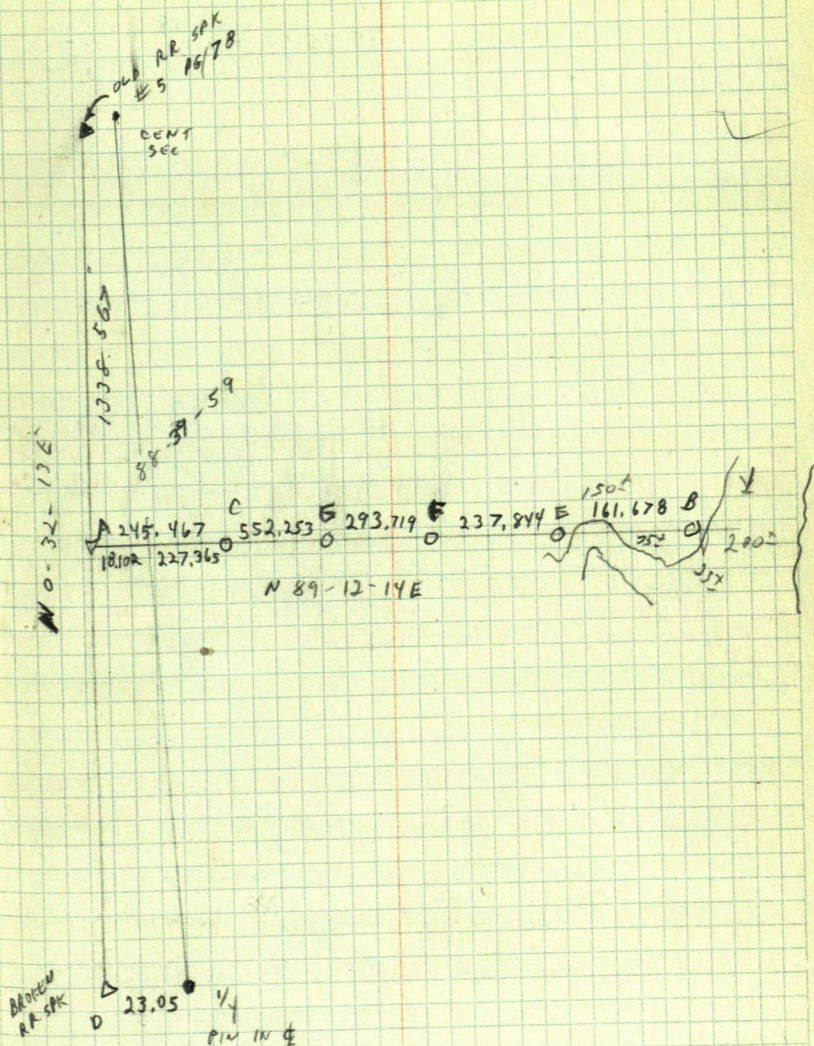 OLD RR SPK
#5 PG/78
CENT
SEC
1338.567
N 0-32-13E
88-39-59
150±
A 245.467 C 552.253 G 293.719 F 237.844 E 161.678 B
18.102 227.365
75±
200±
25±
N 89-12-14E
BROKEN
RR SPK
D 23.05 1/4
PIN IN ℄